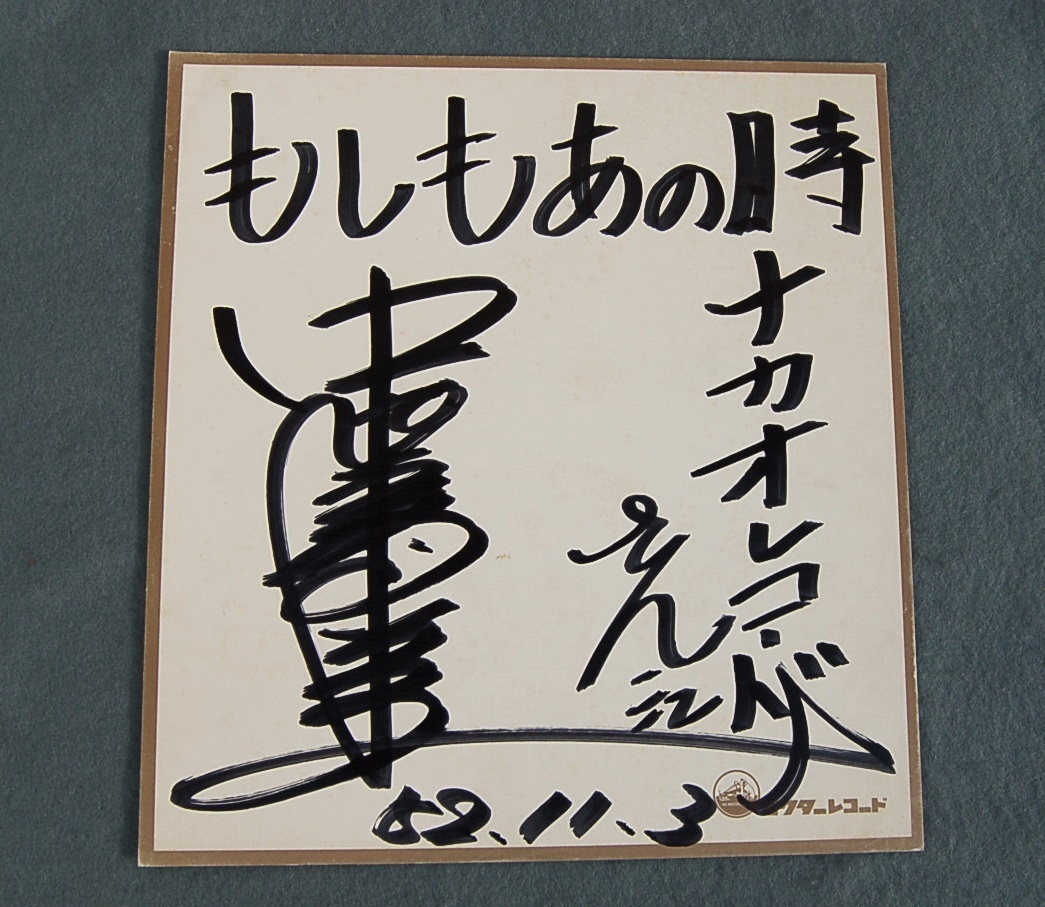 もしもあの時
ナカオレコード
さん江
52.11.3
ビクターレコード